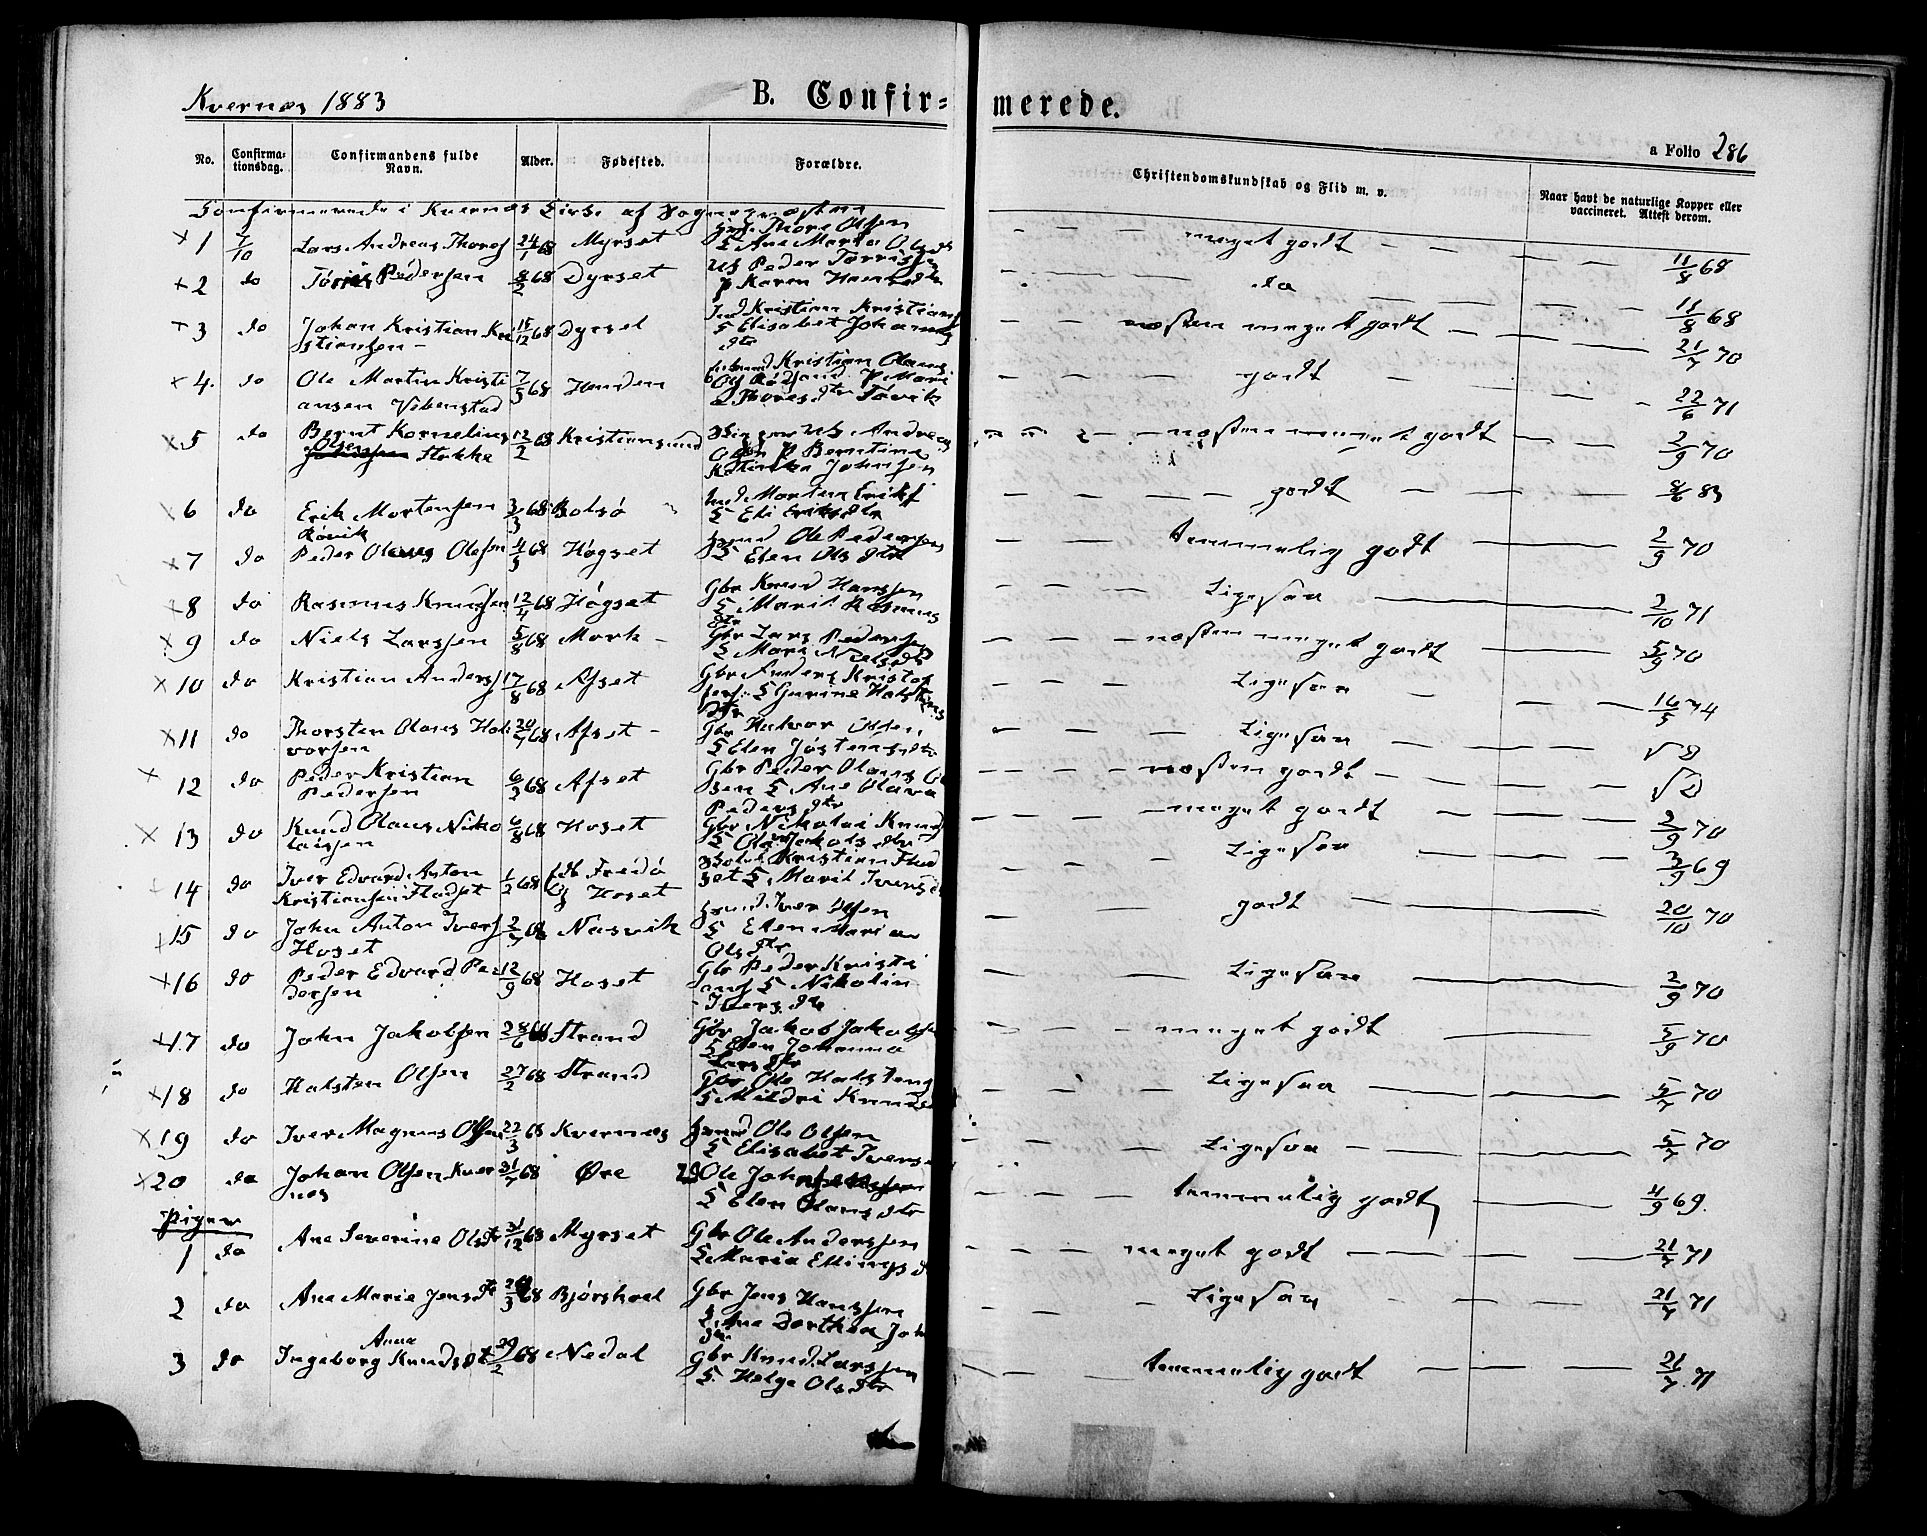 Kvernæs 1883
B. Confir=
merede.
a Folio 286
No.
Confirma-
tionsdag.
Confirmandens fulde
Navn.
Alder.
Fødested.
Forældre.
Christendomskundskab og Flid m. v.
Naar havt de naturlige Kopper eller
vaccineret. Attest derom.
Confirmerede i Kvernæs Kirke af Sognepræsten
1 7/10 Lars Andreas Thoresen 24/1 68 Myrset
Thore Olsen
Ane Marta Olsdtr
meget godt 11/8 68
2 do Pedersen 8/2 68 Dyrset
Peder
Karen
do 11/8 68
3 do Johan Kristian Kri
stiansen 15/12 68 Dyrset
Ind Kristian Kristians
& Elisabet Johannes
dtr
næsten meget godt 21/7 70
4 do Ole Martin Kristi
ansen Vebenstad 7/5 68 Henden
Kristian Olaus
Marie
Thoresdtr
godt 22/6 71
5 do Bernt Kornelius
Olsen Stokke 12/2 68 Kristiansund
Andreas
Olsen Berntine
Johnsen
næsten meget godt 2/9 70
6 do Erik Mortensen
Røvik 3/3 68 Bolsø
Ind Morten Eriks
& Eli Eriksdtr
godt 8/6 83
7 do Peder Olaus Olsen 4/3 68 Høgset
Ole Pedersen
& Elen Olsdtr
temmelig godt 2/9 70
8 do Rasmus Knudsen 12/4 68 Høgset
Gbr Knud Hansen
& Marit Rasmus
dtr
Ligesaa 2/10 71
9 do Niels Larssen 5/8 68 Mork
Gbr Lars Pedersen
& Mari Nielsdtr
næsten meget godt 5/9 70
10 do Kristian Anders 17/8 68 Afset
Gbr Anders Kristof
fers & Gurine Halstens
dtr
Ligesaa 16/5 74
11 do Thorsten Olaus Hal
vorsen 20/7 68 Afset
Gbr Halvor Olsen
& Elen Jostensdtr
Ligesaa
12 do Peder Kristian
Pedersen 6/2 68 Afset
Gbr Peder Olaus Ol
sen & Ane Olava
Pedersdtr
næsten godt
13 do Knud Olaus Niko
laisen 6/8 68 Hoset
Gbr Nikolai Knuds
meget godt 2/9 70
14 do Iver Edvard Anton
Kristiansen Fladset 1/2 68 Fredø
Og Hoset
Kristian Flad
set & Marit Iversd
Ligesaa 3/9 69
15 do John Anton Ivers
Hoset 2/7 68 Nasvik
Iver Olsen
& Elen Marian
Olsdtr
godt 20/10 70
16 do Peder Edvard Pe
dersen 12/9 68 Hoset
Gbr Peder Kristi
ans & Nikolin
Iversdtr
Ligesaa 2/9 70
17 do John Jakobsen 28/6 68 Strand
Gbr Jakob Jakobsen
& Elen Johanna
Larsdtr
meget godt 5/9 70
18 do Halsten Olsen 27/2 68 Strand
Gbr Ole Halstens
& Mildri Knuds
Ligesaa 5/7 70
19 do Iver Magnus Olsen 22/3 68 Kvernæs
Ole Olsen
& Elisabet Ivers
Ligesaa 5/7 70
20 do Johan Olsen Kver
næs 31/7 68 Øre
Ole John
& Elen Olausdtr
temmelig godt 4/9 69.
Piger
1 do Ane Severine Olsdtr 31/12 68 Myrset
Gbr Ole Anderssen
& Maria Ellings d
meget godt 21/7 71
2 do Ane Marie Jensdtr 68 Bjørshol
Gbr Jens Hanssen
& Ane Dorthea Joh
dtr
Ligesaa 21/7 71
Anna
3 do Ingeborg Knudsdt 29/2 68 Nedal
Gbr Knud Larssen
& Helga Olsdtr
temmelig godt 21/7 71